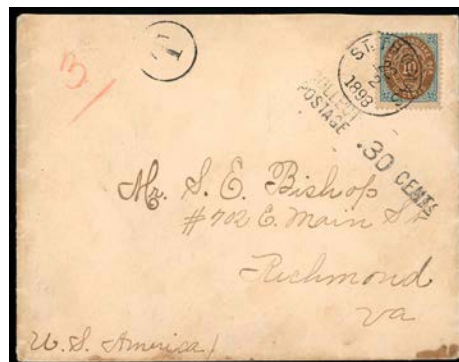 T
3/
10
ST. THOMAS
2
1893
COLLECT
POSTAGE
.30 CENTS
Mr. S. E. Bishop
#702 E. Main St
Richmond
Va
U.S. America/